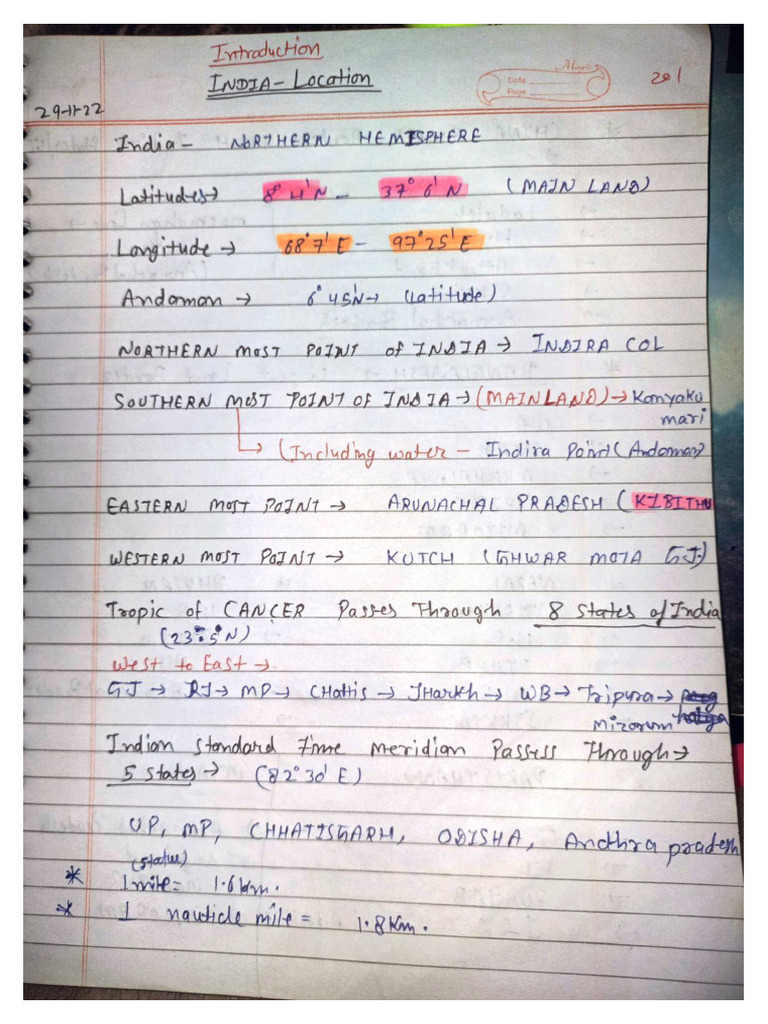 Introduction
INDIA - Location
Magic
Date
Page
201
29-11-22
India - NORTHERN HEMISPHERE
Latitudes → 8°4'N - 37°6'N (MAIN LAND)
Longitude → 68°7'E - 97°25'E
Andaman → 6°45'N → (Latitude)
NORTHERN MOST POINT of INDIA → INDIRA COL
SOUTHERN MOST POINT OF INDIA → (MAINLAND) → Kanyaku
mari
↳ (Including water - Indira Point (Andaman)
EASTERN MOST POINT → ARUNACHAL PRADESH (KIBITHU
WESTERN MOST POINT → KUTCH (GHWAR MOTA GJ)
Tropic of CANCER Passes Through 8 States of India
(23.5°N)
West to East →
GJ → RJ → MP → CHattis → JHarkh → WB → Tripura →
mizorum
Indian Standard Time Meridian Passess Through →
5 States → (82°30'E)
UP, MP, CHHATISGARH, ODISHA, Andhra pradesh
(Statue)
* 1 mile = 1.6 km.
* 1 nauticle mile = 1.8 Km.